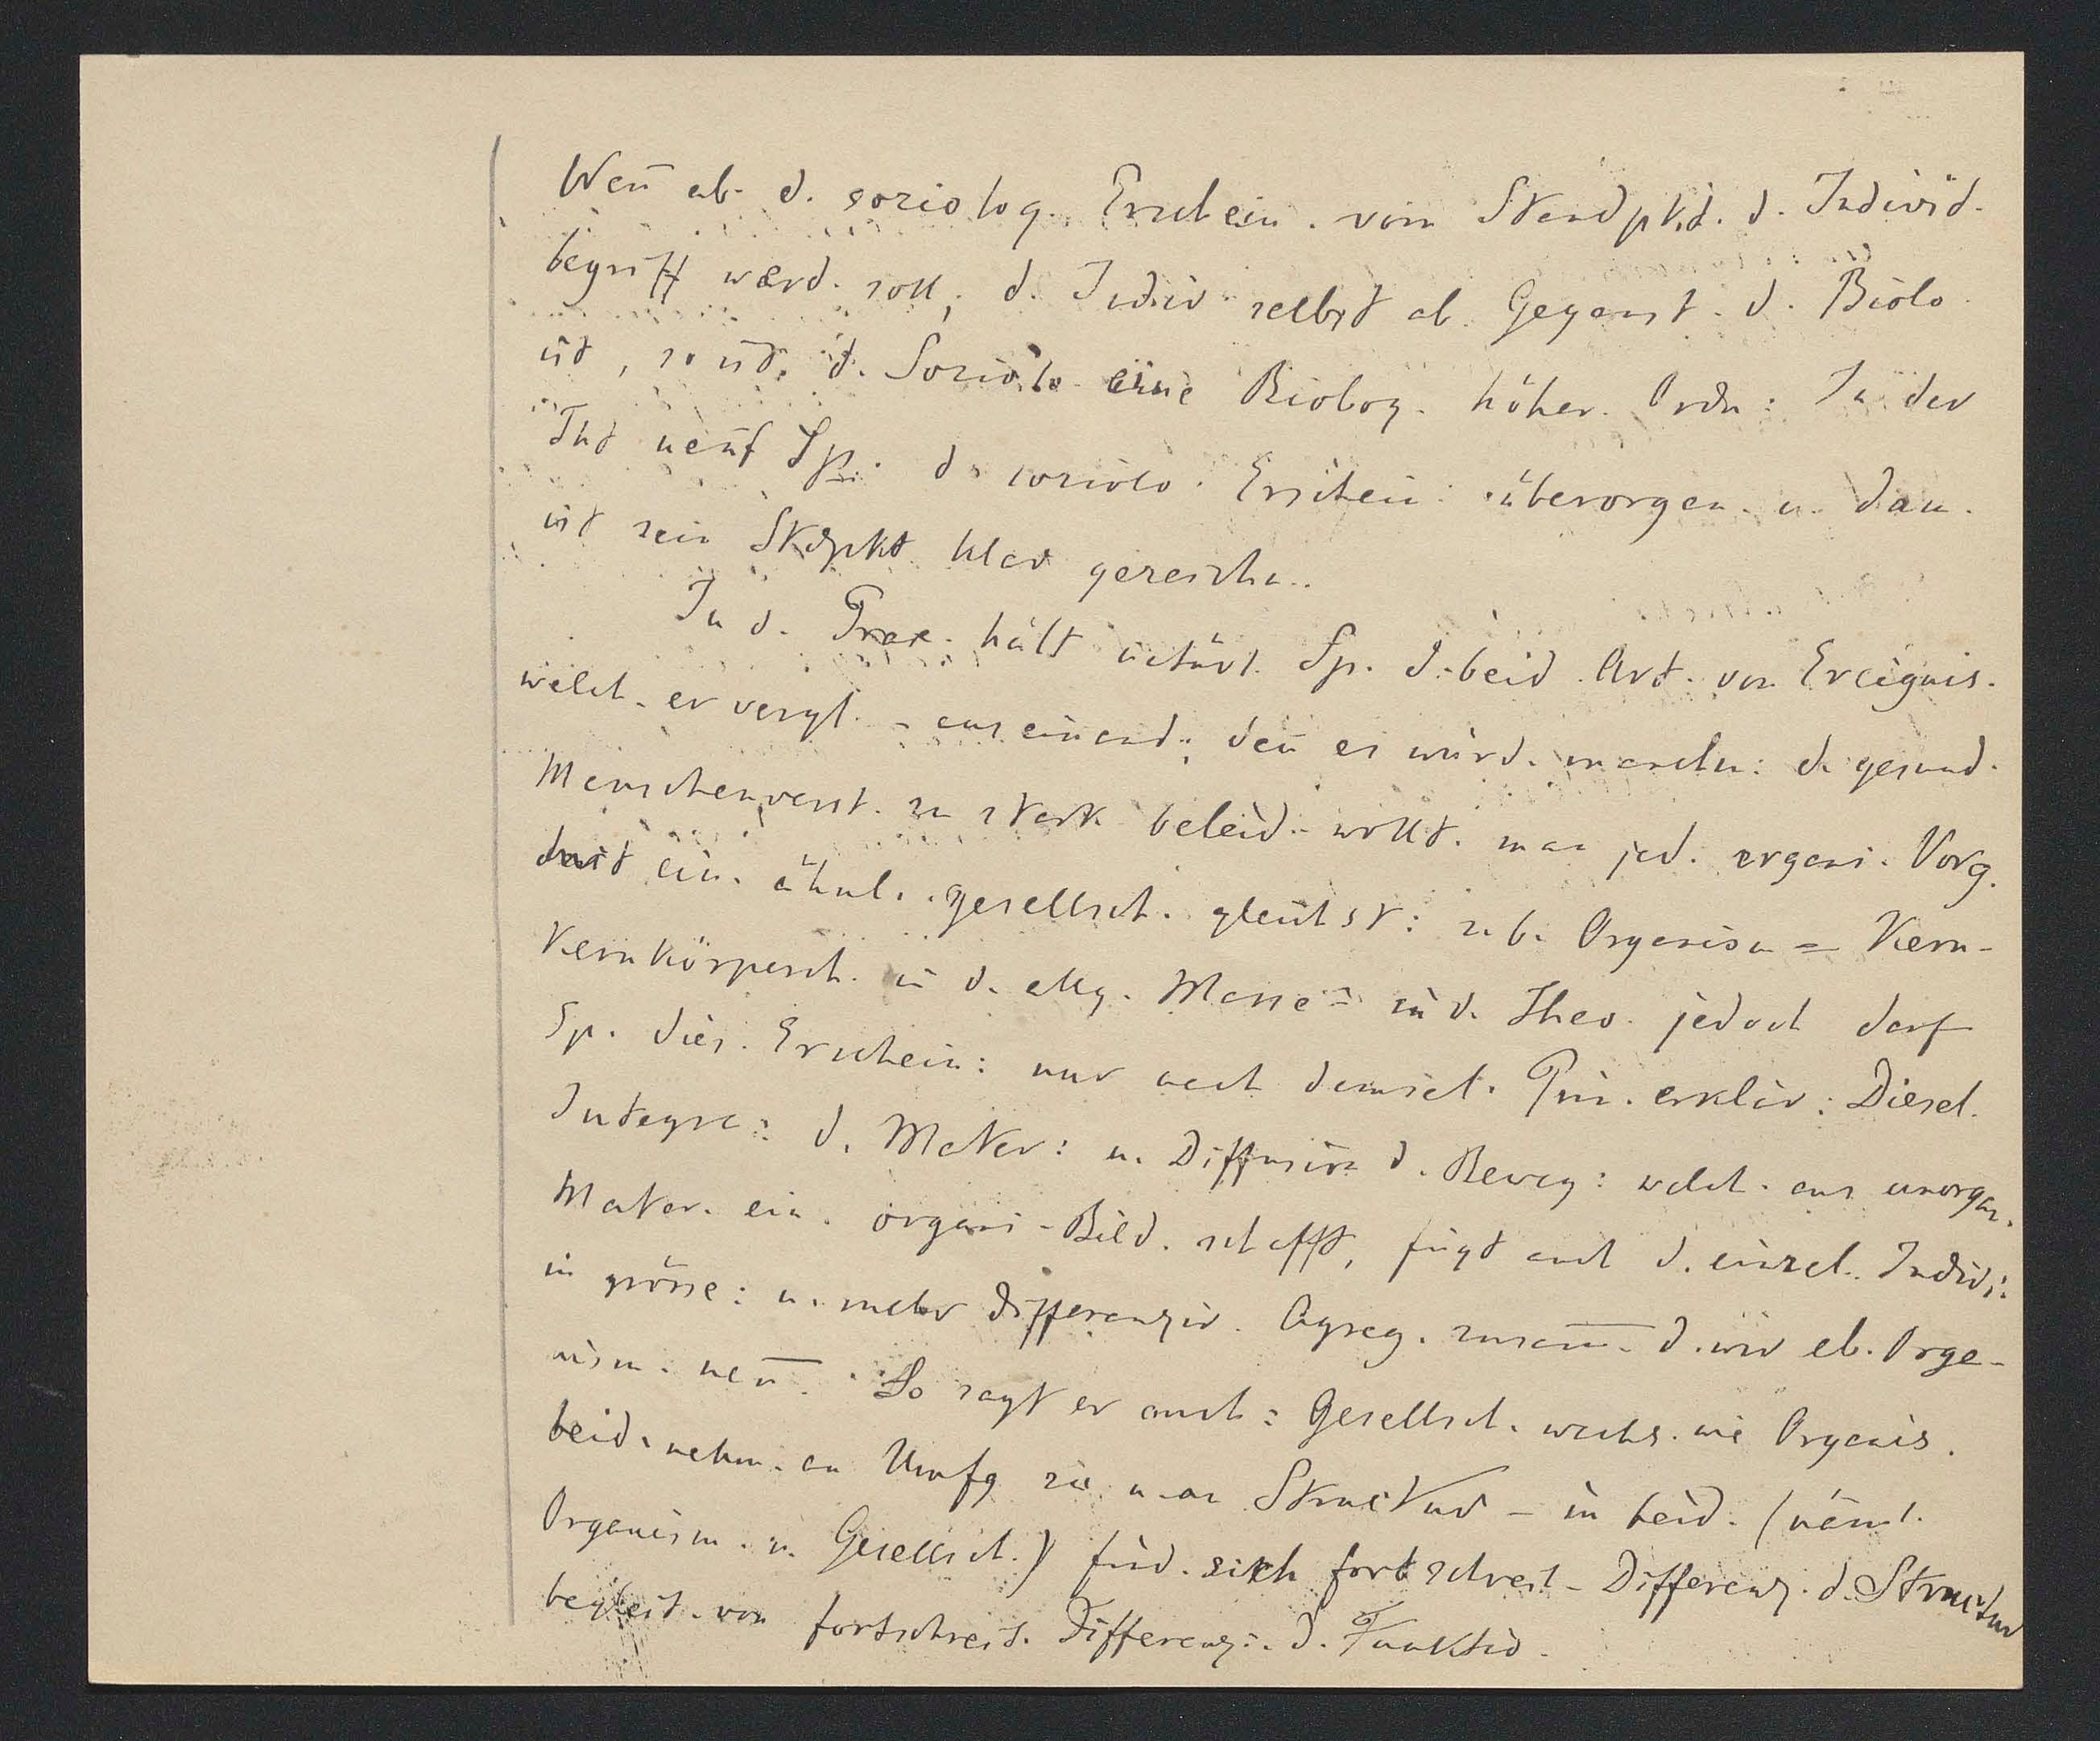 Wen̄ ab. d. soziolog. Erschein. vom Standpkt. d. Individ.
begriff werd. soll, d. Indiv. selbst ab. Gegenst. d. Biolo.
ist, so ist d. Soziolo. eine Biolog. höher. Ordn: In der
Tht nen̄t Sp. d. soziolo. Erschein: überorgan. u. dan.
ist sein Stdpkt klar gezeichn..
In d. Prax. hält natürl. Sp. d. beid. Art. von Ereignis.
welch. er vergl. – auseinand., den̄ es würd. manchm: d. gesund.
Menschenverst. zu stark beleid. wollt. man jed. organi. Vorg.
mit ein. ähnl. gesellsch. gleichst: z. b. Organism = Kern-
Kernkörperch. in d. allg. Masse = in d. Theo. jedoch darf
Sp. dies. Erschein: nur nach demsel. Prin. erklär: Diesel.
Integra: d. Mater: u. Diffusion d. Beweg: welch. aus unorgan.
Mater. ein. organi. Bild. schafft, fügt auch d. einzel. Indivi:
in grösse: u. mehr differenzir. Agreg. zusam̄. d. wir eb. Orga-
nism. nen̄. So sagt er auch: Gesellsch. wachs. wie Organis.
beid. nehm. an Umfg zu u. an Structur – in beid. (näml.
Organism. u. Gesellsch.) find. sich fortschreit. Differenz. d. Structur
begleit. von fortschreit. Differenzi. d. Funktio.